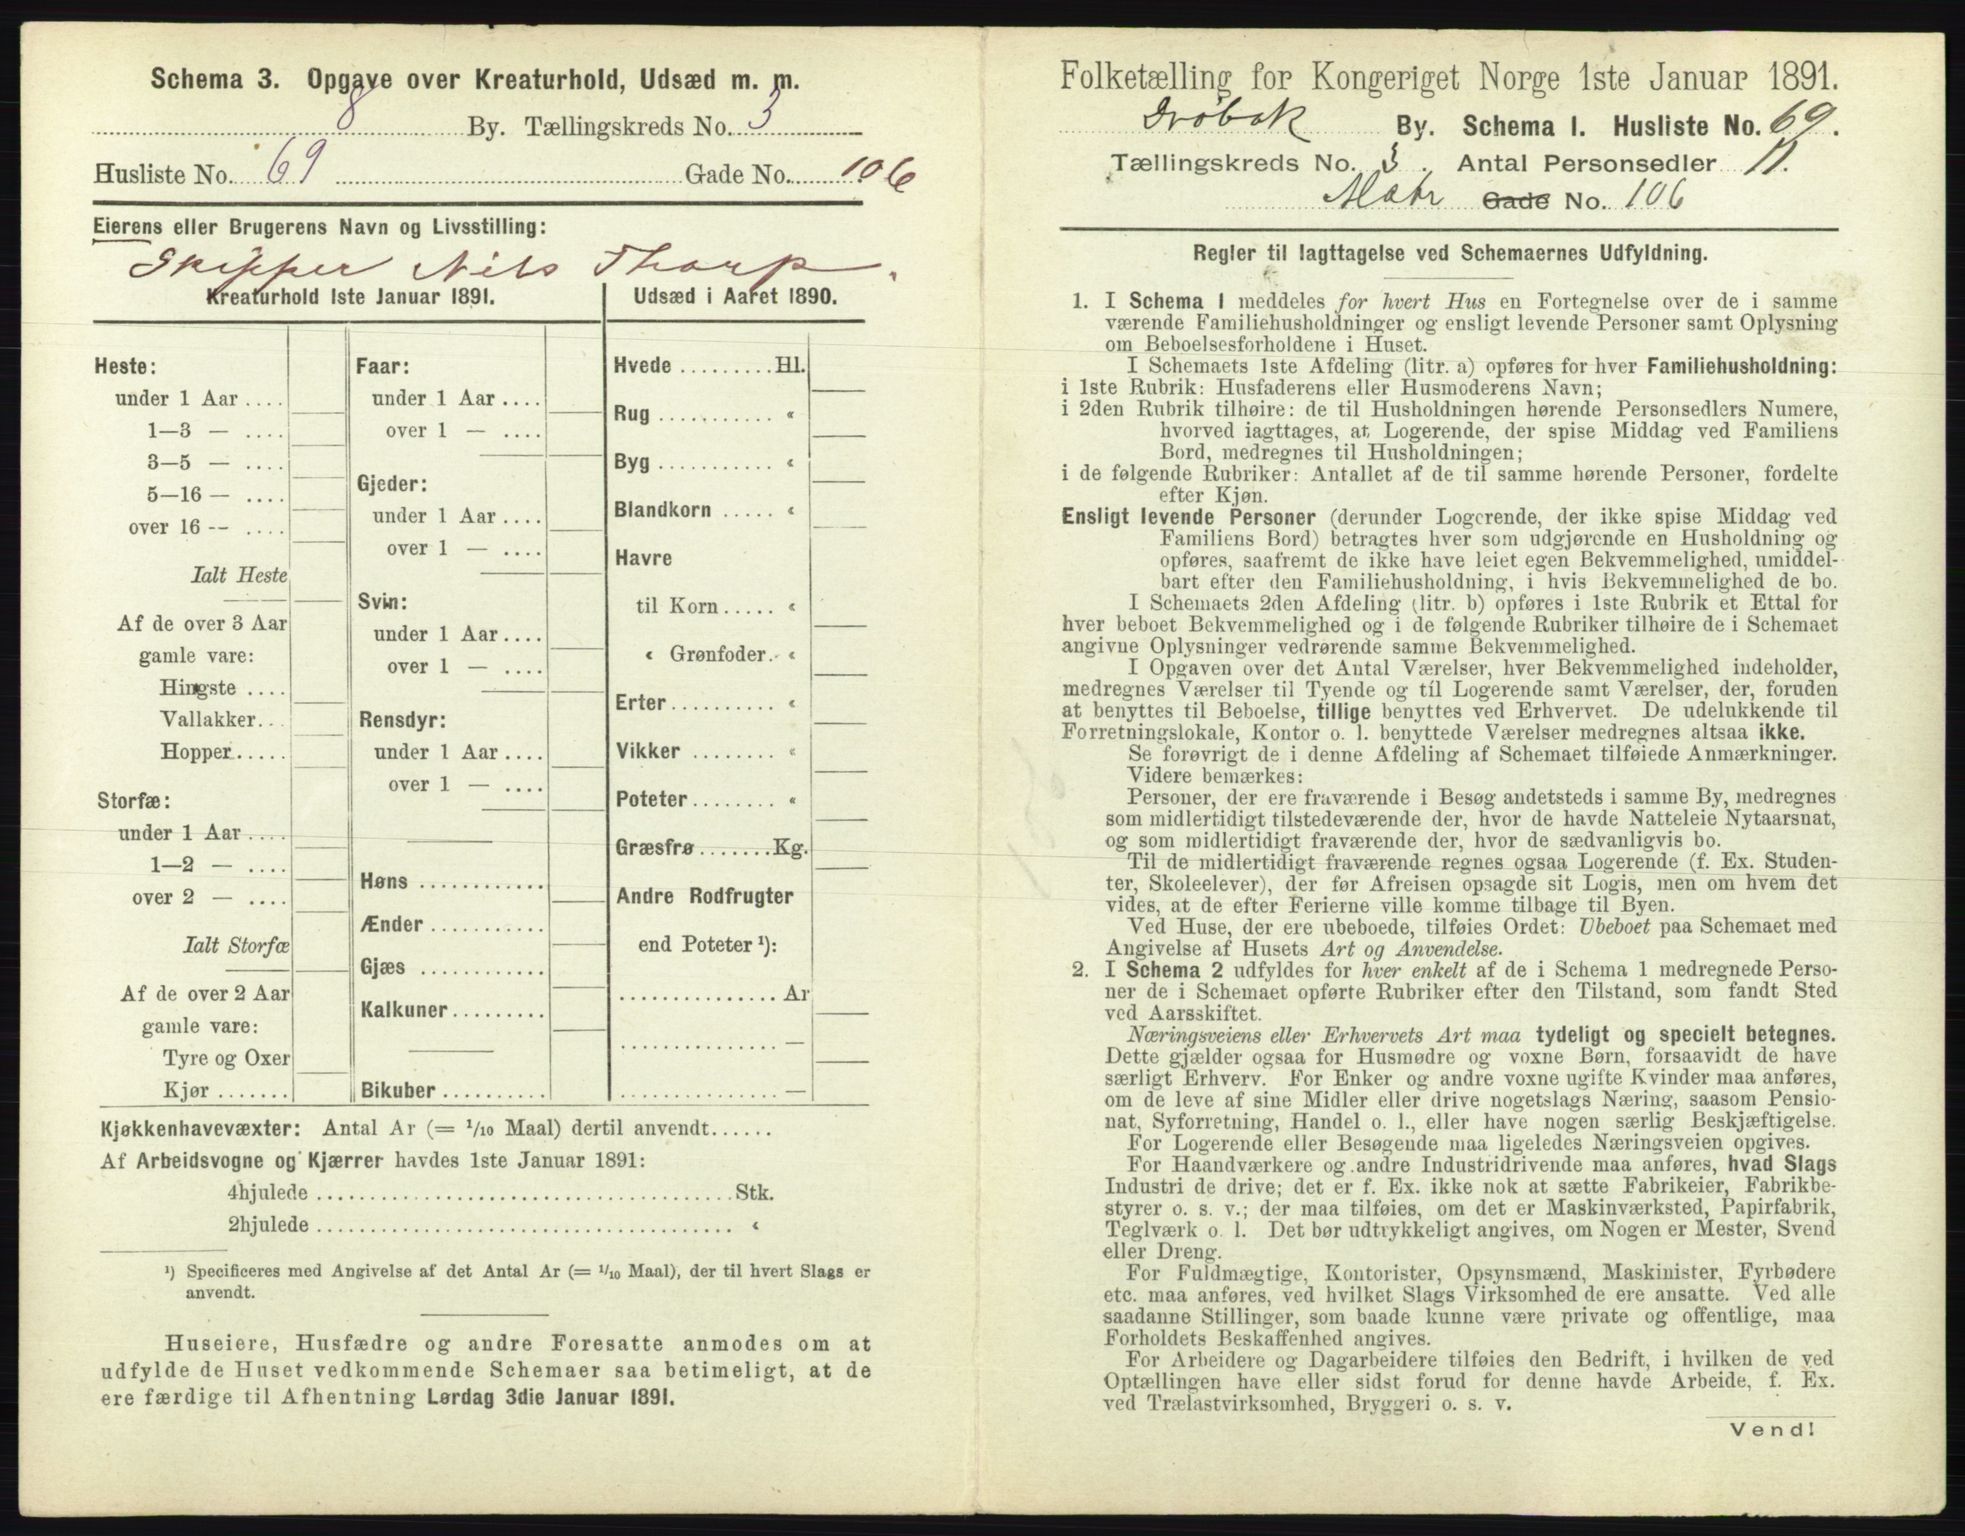 Schema 3. Opgave over Kreaturhold, Udsæd m. m.
8 By. Tællingskreds No. 3
Husliste No. 69 Gade No. 106
Eierens eller Brugerens Navn og Livsstilling:
Skipper Nils Thorp.
Kreaturhold 1ste Januar 1891.
Heste:
under 1 Aar ....
1—3 — ....
3—5 — ....
5—16 — ....
over 16 -- ....
Ialt Heste
Af de over 3 Aar
gamle vare:
Hingste ....
Vallakker...
Hopper.....
Storfæ:
under 1 Aar ....
1—2 — ....
over 2 — ....
Ialt Storfæ
Af de over 2 Aar
gamle vare:
Tyre og Oxer
Kjør .......
Faar:
under 1 Aar ....
over 1 — ....
Gjeder:
under 1 Aar ....
over 1 — ....
Svin:
under 1 Aar ....
over 1 — ....
Rensdyr:
under 1 Aar ....
over 1 — ....
Høns ............
Ænder ...........
Gjæs ............
Kalkuner.........
Bikuber ..........
Udsæd i Aaret 1890.
Hvede .........Hl.
Rug ........... «
Byg ........... «
Blandkorn ..... «
Havre
til Korn ..... «
« Grønfoder.. «
Erter .......... «
Vikker ........ «
Poteter ........ «
Græsfrø .......Kg.
Andre Rodfrugter
end Poteter ¹):
............... Ar
............... —
............... —
Kjøkkenhavevæxter: Antal Ar (= 1/10 Maal) dertil anvendt......
Af Arbeidsvogne og Kjærrer havdes 1ste Januar 1891:
4hjulede ........................................Stk.
2hjulede ........................................ «
¹) Specificeres med Angivelse af det Antal Ar (= 1/10 Maal), der til hvert Slags er
anvendt.
Huseiere, Husfædre og andre Foresatte anmodes om at
udfylde de Huset vedkommende Schemaer saa betimeligt, at de
ere færdige til Afhentning Lørdag 3die Januar 1891.
Folketælling for Kongeriget Norge 1ste Januar 1891.
Drøbak By. Schema 1. Husliste No. 69.
Tællingskreds No. 3. Antal Personsedler 11.
Matr Gade No. 106
Regler til Iagttagelse ved Schemaernes Udfyldning.
1. I Schema 1 meddeles for hvert Hus en Fortegnelse over de i samme
værende Familiehusholdninger og ensligt levende Personer samt Oplysning
om Beboelsesforholdene i Huset.
I Schemaets 1ste Afdeling (litr. a) opføres for hver Familiehusholdning:
i 1ste Rubrik: Husfaderens eller Husmoderens Navn;
i 2den Rubrik tilhøire: de til Husholdningen hørende Personsedlers Numere,
hvorved iagttages, at Logerende, der spise Middag ved Familiens
Bord, medregnes til Husholdningen;
i de følgende Rubriker: Antallet af de til samme hørende Personer, fordelte
efter Kjøn.
Ensligt levende Personer (derunder Logerende, der ikke spise Middag ved
Familiens Bord) betragtes hver som udgjørende en Husholdning og
opføres, saafremt de ikke have leiet egen Bekvemmelighed, umiddel-
bart efter den Familiehusholdning, i hvis Bekvemmelighed de bo.
I Schemaets 2den Afdeling (litr. b) opføres i 1ste Rubrik et Ettal for
hver beboet Bekvemmelighed og i de følgende Rubriker tilhøire de i Schemaet
angivne Oplysninger vedrørende samme Bekvemmelighed.
I Opgaven over det Antal Værelser, hver Bekvemmelighed indeholder,
medregnes Værelser til Tyende og til Logerende samt Værelser, der, foruden
at benyttes til Beboelse, tillige benyttes ved Erhvervet. De udelukkende til
Forretningslokale, Kontor o. l. benyttede Værelser medregnes altsaa ikke.
Se forøvrigt de i denne Afdeling af Schemaet tilføiede Anmærkninger.
Videre bemærkes:
Personer, der ere fraværende i Besøg andetsteds i samme By, medregnes
som midlertidigt tilstedeværende der, hvor de havde Natteleie Nytaarsnat,
og som midlertidigt fraværende der, hvor de sædvanligvis bo.
Til de midlertidigt fraværende regnes ogsaa Logerende (f. Ex. Studen-
ter, Skoleelever), der før Afreisen opsagde sit Logis, men om hvem det
vides, at de efter Ferierne ville komme tilbage til Byen.
Ved Huse, der ere ubeboede, tilføies Ordet: Ubeboet paa Schemaet med
Angivelse af Husets Art og Anvendelse.
2. I Schema 2 udfyldes for hver enkelt af de i Schema 1 medregnede Perso-
ner de i Schemaet opførte Rubriker efter den Tilstand, som fandt Sted
ved Aarsskiftet.
Næringsveiens eller Erhvervets Art maa tydeligt og specielt betegnes.
Dette gjælder ogsaa for Husmødre og voxne Børn, forsaavidt de have
særligt Erhverv. For Enker og andre voxne ugifte Kvinder maa anføres,
om de leve af sine Midler eller drive nogetslags Næring, saasom Pensio-
nat, Syforretning, Handel o. l., eller have nogen særlig Beskjæftigelse.
For Logerende eller Besøgende maa ligeledes Næringsveien opgives.
For Haandværkere og andre Industridrivende maa anføres, hvad Slags
Industri de drive; det er f. Ex. ikke nok at sætte Fabrikeier, Fabrikbe-
styrer o. s. v.; der maa tilføies, om det er Maskinværksted, Papirfabrik,
Teglværk o. l. Det bør udtrykkeligt angives, om Nogen er Mester, Svend
eller Dreng.
For Fuldmægtige, Kontorister, Opsynsmænd, Maskinister, Fyrbødere
etc. maa anføres, ved hvilket Slags Virksomhed de ere ansatte. Ved alle
saadanne Stillinger, som baade kunne være private og offentlige, maa
Forholdets Beskaffenhed angives.
For Arbeidere og Dagarbeidere tilføies den Bedrift, i hvilken de ved
Optællingen have eller sidst forud for denne havde Arbeide, f. Ex.
ved Trælastvirksomhed, Bryggeri o. s. v.
Vend!